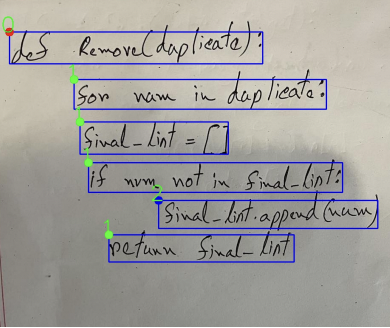 0
def Remove(duplicate):
1
for num in duplicate:
1
final_list = []
1
if num not in final_list:
2
final_list.append(num)
1
return final_list